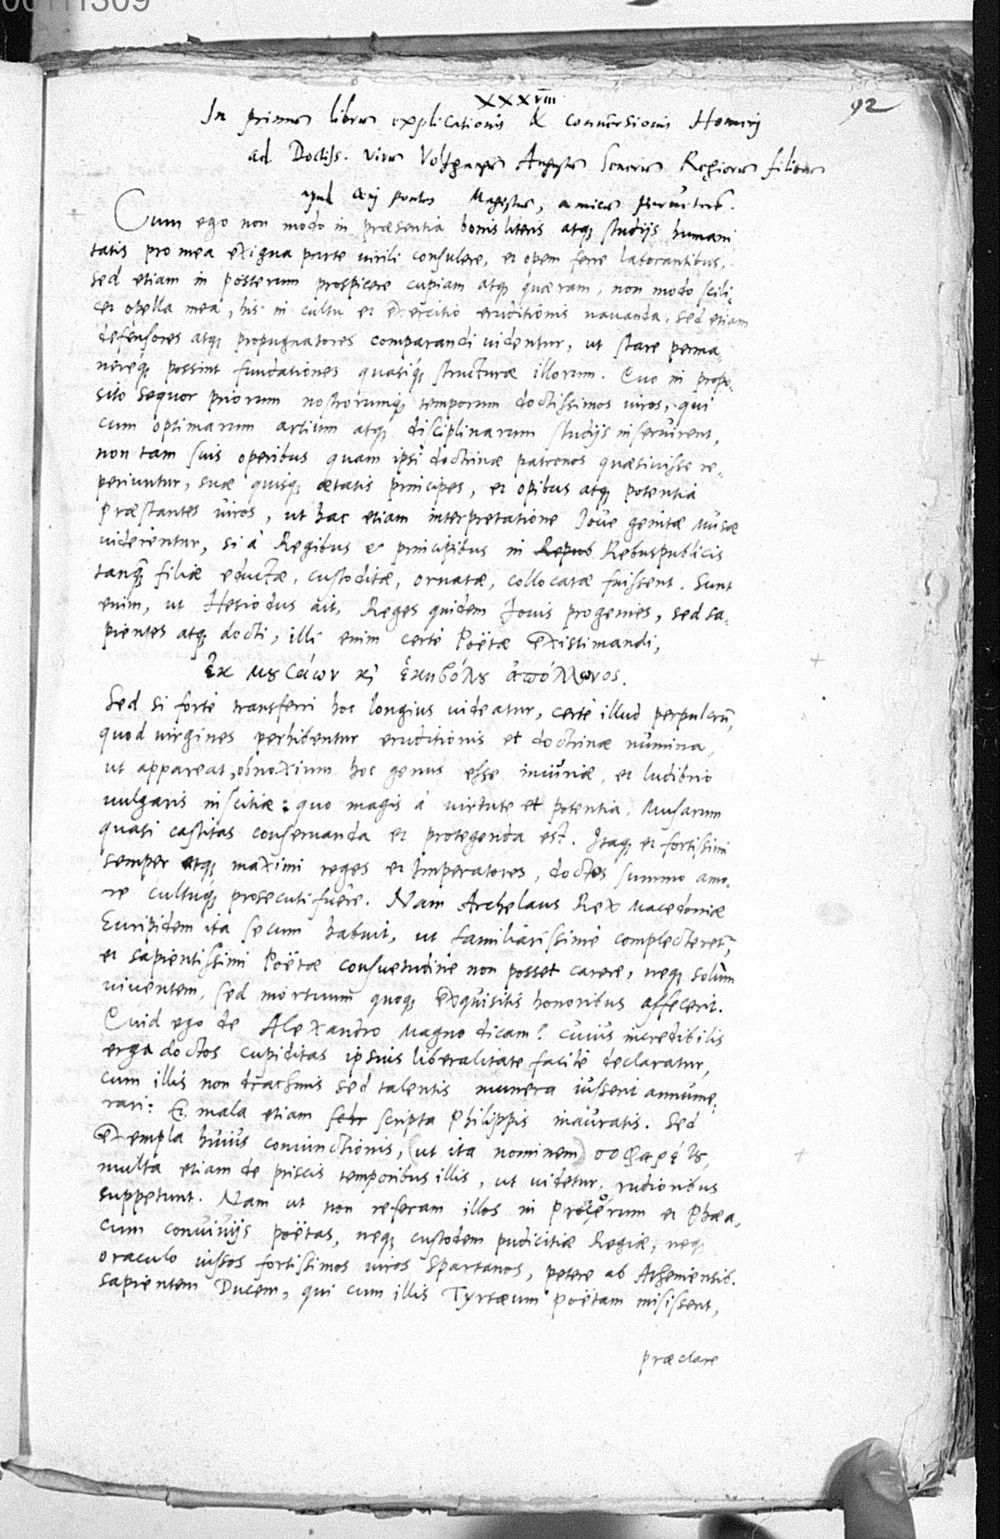 00111309
92
XXXVIII
In primum librum explicationis & conversionis Homeri
ad Doctiss. virum Volfgangum Augustum Regiorum filiorum
apud Magistrum, amicum
Cum ego non modo in præsentia bonis literis atq; studijs humani
tatis pro mea exigua parte virili consulere, et opem ferre laborantibus,
sed etiam in posterum prospicere cupiam atq; quæram, non modo scili,
cet opella mea, his in cultu et exercitio eruditionis navanda, sed etiam
defensores atq; propugnatores comparandi videntur, ut stare perma,
nereq; possint fundationes quasiq; structuræ illorum. Quo in propo,
sito sequor priorum nostrorumq; temporum doctissimos viros, qui
cum optimarum artium atq; disciplinarum studijs inservirent,
non tam suis operibus quam ipsi doctrinæ patronos quæsivisse re,
periuntur, suæ quisq; ætatis principes, et opibus atq; potentia
præstantes viros, ut hac etiam interpretatione Iove genitæ Musæ
viderentur, si à Regibus et principibus in Repub Rebuspublicis
tanq̃ filiæ eductæ, custoditæ, ornatæ, collocatæ fuissent. Sunt
enim, ut Hesiodus ait, Reges quidem Iovis progenies, sed sa,
pientes atq; docti, illi enim certè Poëtæ existimandi,
ἐκ μουσάων καὶ ἑκηβόλου ἀπόλλωνος.
Sed si fortè transferri hoc longius videatur, certè illud perpulcrũ,
quod virgines perhibentur eruditionis et doctrinæ numina,
ut appareat, obnoxium hoc genus esse iniuriæ, et ludibrio
vulgaris inscitiæ: quo magis à virtute et potentia, Musarum
quasi castitas conservanda et protegenda est. Itaq; et fortissimi
semper atq; maximi reges et Imperatores, doctos summo amo,
re cultuq; prosecuti fuêre. Nam Archelaus Rex Macedoniæ
Euripidem ita secum habuit, ut familiarissimè complecteret,
et sapientissimi Poëtæ consuetudine non posset carere, neq; solùm
viventem, sed mortuum quoq; exquisitis honoribus affecerit.
Quid ego de Alexandro Magno dicam? cuius incredibilis
erga doctos cupiditas ipsius liberalitate facilè declaratur,
cum illis non drachmis sed talentis munera iusserit annume,
rari: Et mala etiam scripta Philippis inauratis. Sed
Exempla huius coniunctionis, (ut ita nominem)
multa etiam de priscis temporibus illis, ut videtur, rudioribus
suppetunt. Nam ut non referam illos in Procerum et Phæa,
cum convivijs poëtas, neq; custodem pudicitiæ Regiæ, neq;
oraculo iussos fortissimos viros Spartanos, petere ab Atheniensib.
sapientem Ducem, qui cum illis Tyrtæum poëtam misissent,
præclare